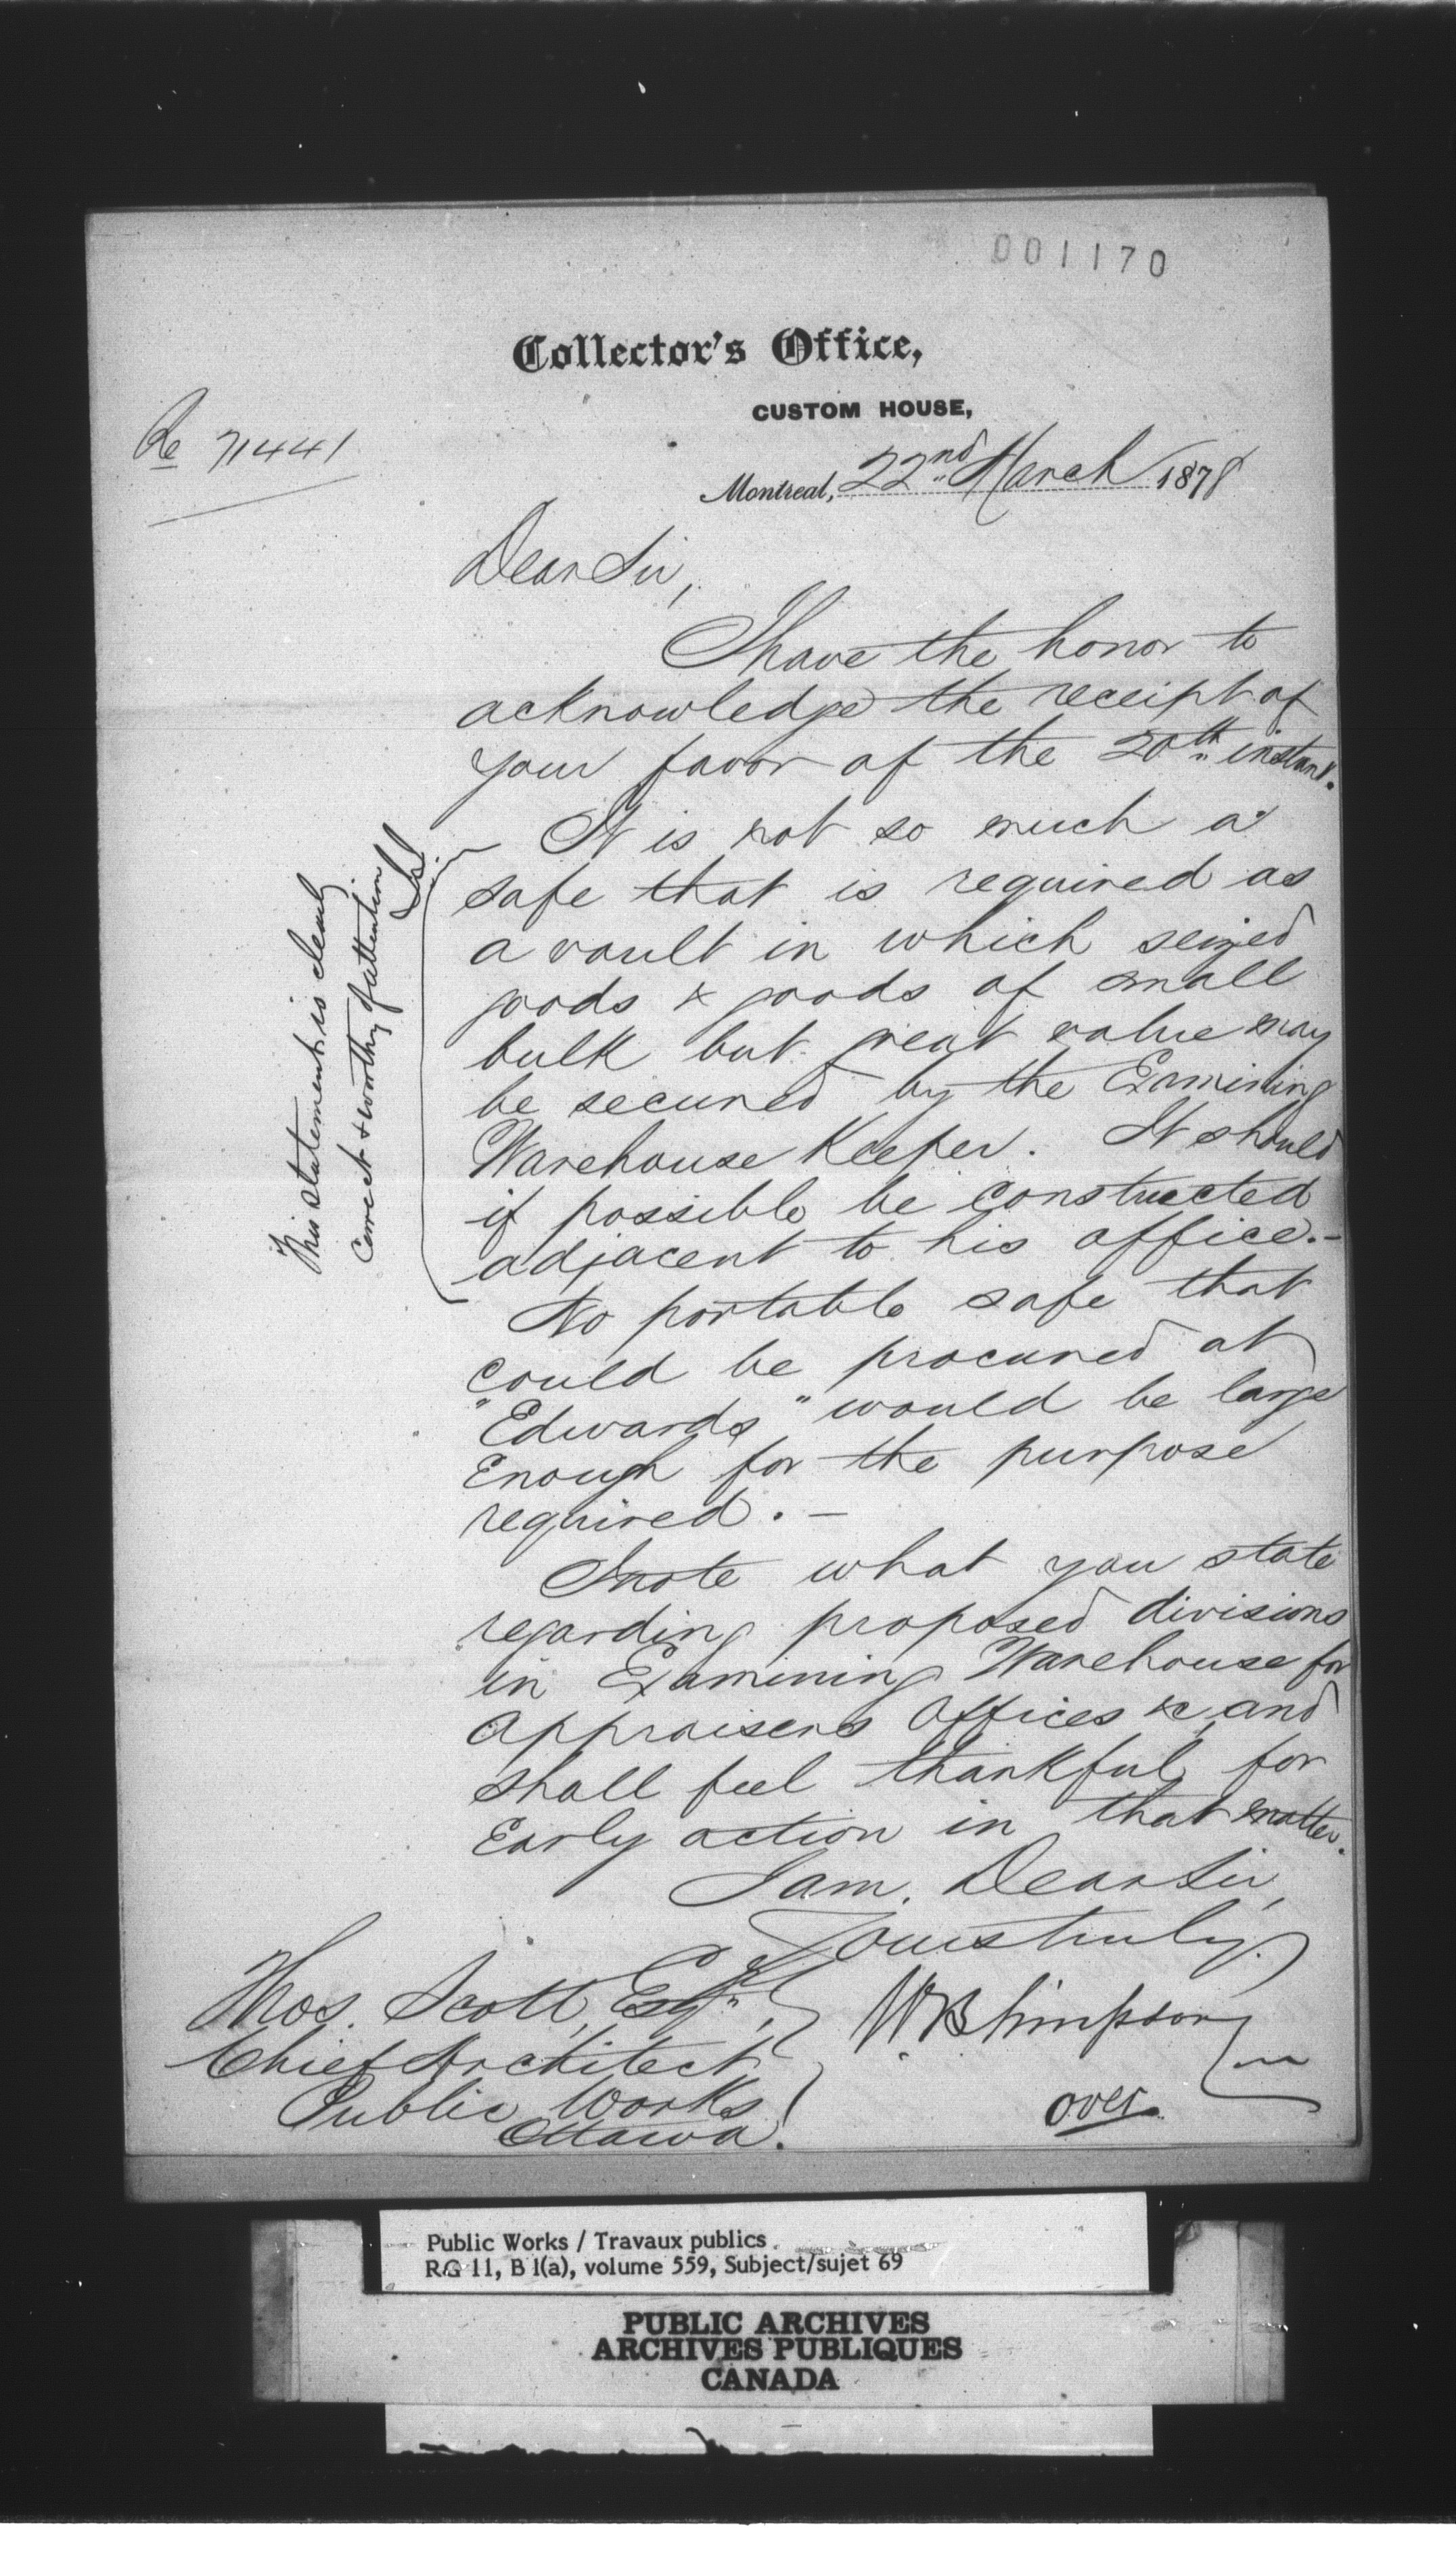 001170
Collector's Office,
CUSTOM HOUSE,
Re 71441
Montreal, 22nd March 1878
Dear Sir,
I have the honor to
acknowledge the receipt of
your favor of the 20th instant.
It is not so much a
safe that is required as
a vault in which seized
goods & goods of small
bulk but great value may
be secured by the Examining
Warehouse Keeper. It should
if possible be constructed
adjacent to his office.-
No portable safe that
could be procured at
"Edwards" would be large
Enough for the purpose
required. -
I note what you state
regarding proposed divisions
in Examining Warehouse for
appraisers Offices &c, and
shall feel thankful for
Early action in that matter.
I am, Dear Sir,
Yours truly.
W B Simpson
Thos. Scott, Esqr.
Chief Architect
Public Works
Ottawa.
over
This statement is clearly
correct & worthy of attention
Public Works / Travaux publics
RG 11, B 1(a), volume 559, Subject/sujet 69
PUBLIC ARCHIVES
ARCHIVES PUBLIQUES
CANADA